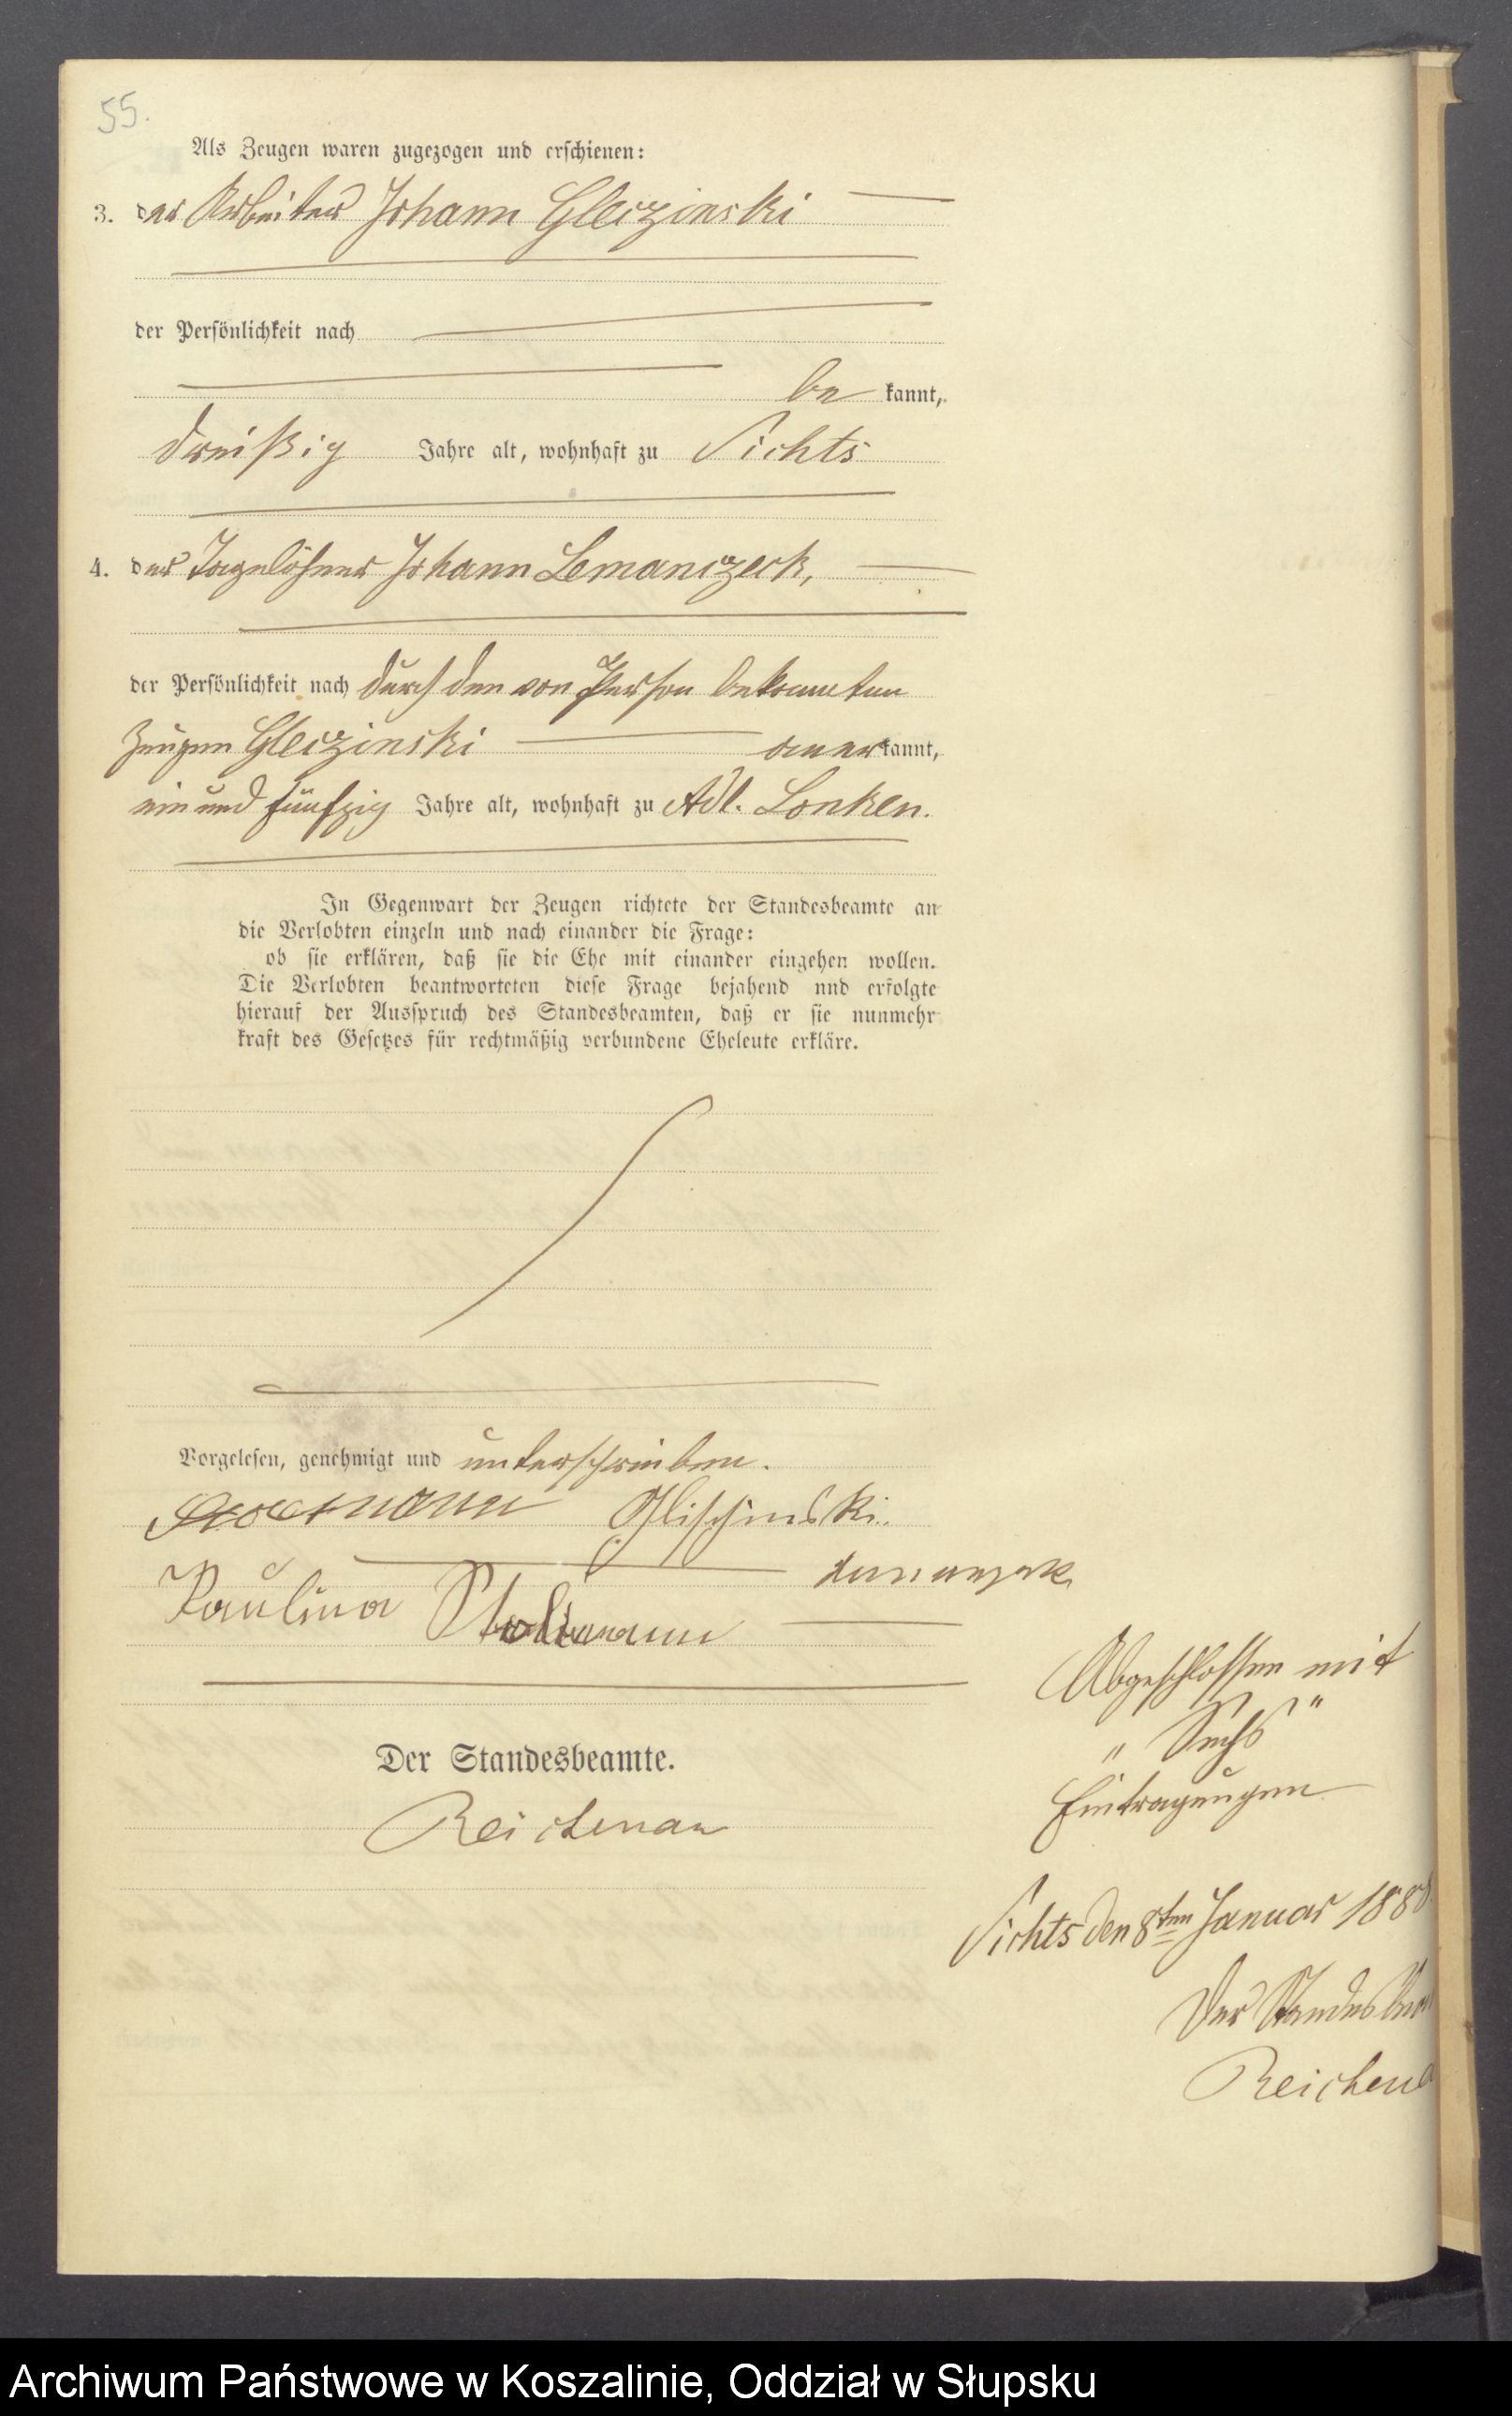 55.
Als Zeugen waren zugezogen und erschienen:
3. der Arbeiter Johann Gleczinski
der Persönlichkeit nach
be kannt,
dreißig Jahre alt, wohnhaft zu Sichts
4. der Tagelöhner Johann Lemanczeck,
der Persönlichkeit nach durch den von Person bekannten
Zeugen Gleczinski anerkannt,
ein und fünfzig Jahre alt, wohnhaft zu Adl. Lonken.
In Gegenwart der Zeugen richtete der Standesbeamte an
die Verlobten einzeln und nach einander die Frage:
ob sie erklären, daß sie die Ehe mit einander eingehen wollen.
Die Verlobten beantworteten diese Frage bejahend und erfolgte
hierauf der Ausspruch des Standesbeamten, daß er sie nunmehr
kraft des Gesetzes für rechtmäßig verbundene Eheleute erkläre.
Vorgelesen, genehmigt und unterschrieben.
Glischinski.
Paulina Stoltmann
Der Standesbeamte.
Reichenau
Abgeschlossen mit
„ Sechs "
Eintragungen
Sichts den 8ten Januar 188
Der Standesbea
Reichena
Archiwum Państwowe w Koszalinie, Oddział w Słupsku